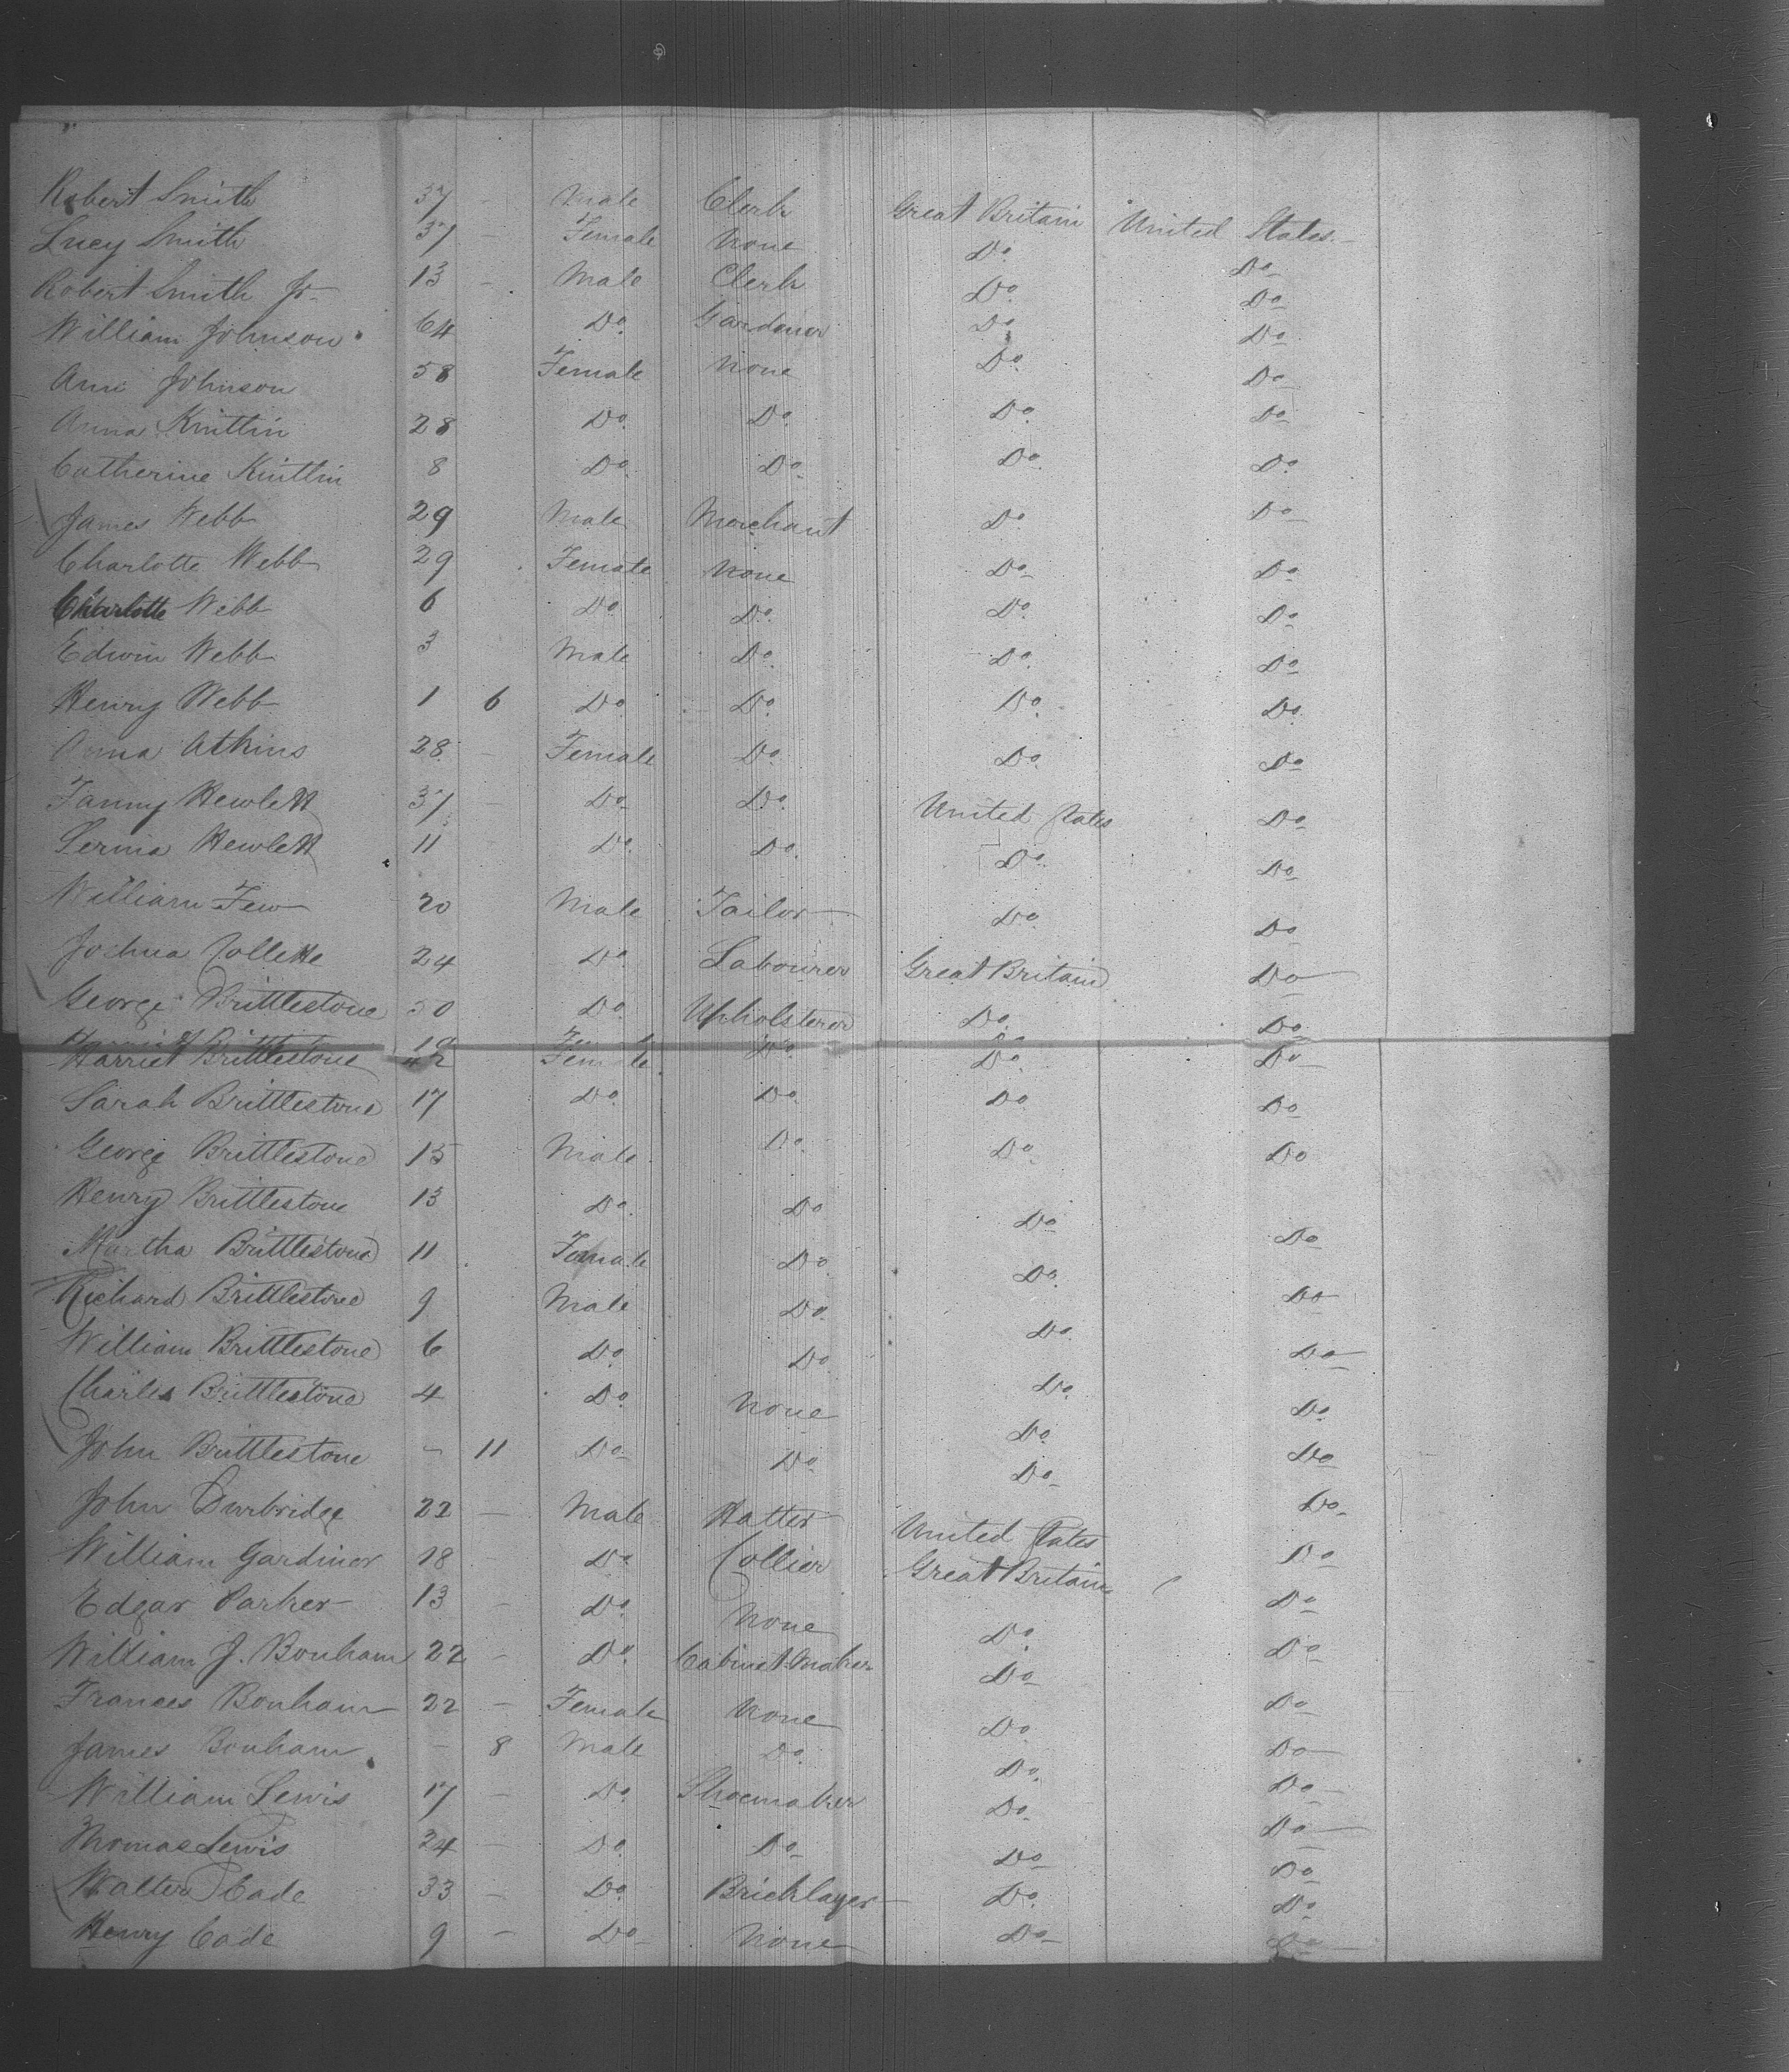 Robert Smith 37 – Male Clerk Great Britain United States
Lucy Smith 37 – Female None Do Do
Robert Smith Jr 13 – Male Clerk Do Do
William Johnson 64 Do Gardener Do Do
Ann Johnson 58 Female None Do Do
Anna Knittin 28 Do Do Do Do
Catherine Knittin 8 Do Do Do Do
James Webb 29 Male Merchant Do Do
Charlotte Webb 29 Female None Do Do
Charlotte Webb 6 Do Do Do Do
Edwin Webb 3 Male Do Do Do
Henry Webb 1 6 Do Do Do Do
Anna Atkins 28 – Female Do Do Do
Fanny Hewlett 37 – Do Do United States Do
Hewlett 11 Do Do Do Do
William Few 20 Male Tailor Do Do
Joshua Collette 24 Do Labourer Great Britain Do
George Brittlestone 50 Do Upholsterer Do Do
Harriet Brittlestone 42 Female Do Do Do
Sarah Brittlestone 17 Do Do Do Do
George Brittlestone 15 Male Do Do Do
Henry Brittlestone 13 Do Do Do Do
Martha Brittlestone 11 Female Do Do Do
Richard Brittlestone 9 Male Do Do Do
William Brittlestone 6 Do Do Do Do
Charles Brittlestone 4 Do None Do Do
John Brittlestone – 11 Do Do Do Do
John Durbridge 22 – Male Hatter United States Do
William Gardiner 28 – Do Collier Great Britain Do
Edgar Parker 13 – Do None Do Do
William J. Bonham 22 – Do Cabinet Maker Do Do
Frances Bonham 22 – Female None Do Do
James Bonham – 8 Male Do Do Do
William Lewis 17 – Do Shoemaker Do Do
Thomas Lewis 24 – Do Do Do Do
Walter Cade 33 – Do Bricklayer Do Do
Henry Cade 9 – Do None Do Do